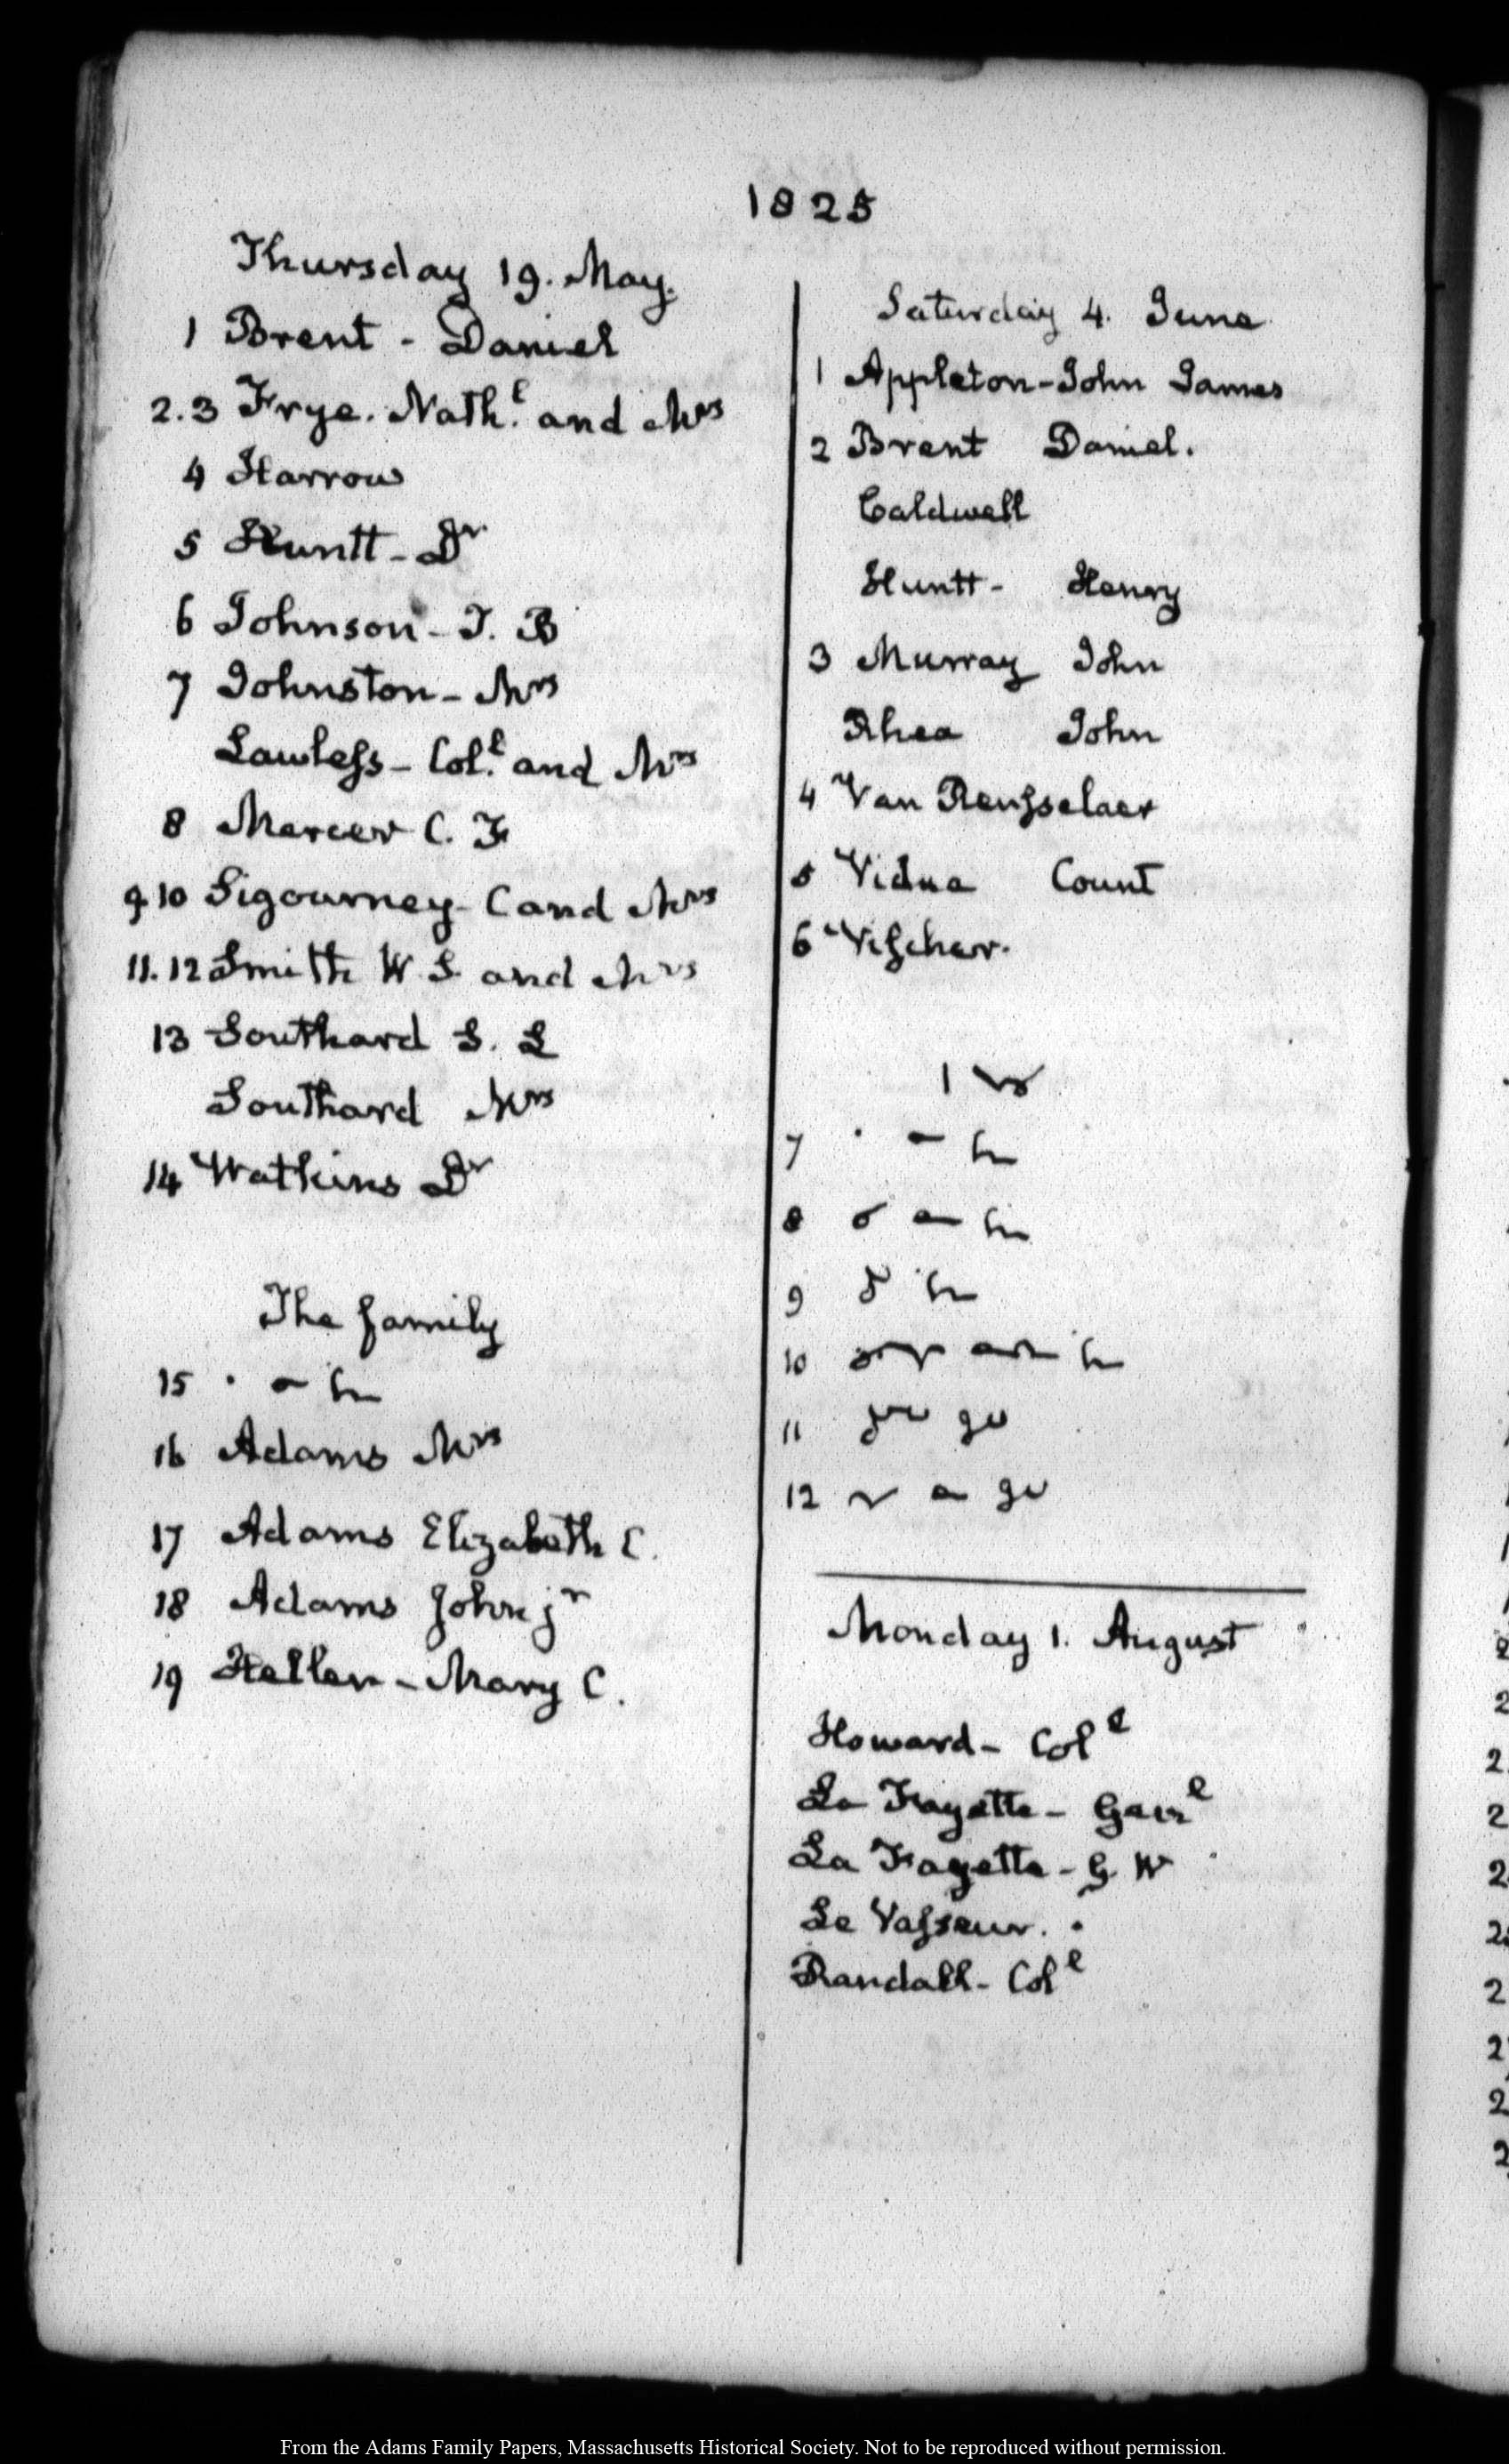 1825
Thursday 19. May.
1 Brent - Daniel
2.3 Frye. Nath.l and Mrs
4 Harrow
5 Huntt - Dr
6 Johnson - T. B
7 Johnston - Mrs
Lawless - Col.l and Mrs
8 Mercer C. F
9.10 Sigourney - C and Mrs
11.12 Smith W. S. and Mrs
13 Southard S. L
Southard Mrs
14 Watkins Dr
The family
15
16 Adams Mrs
17 Adams Elizabeth C.
18 Adams John jr
19 Hellen - Mary C.
Saturday 4. June
1 Appleton - John James
2 Brent Daniel.
Caldwell
Huntt - Henry
3 Murray John
Rhea John
4 Van Rensselaer
5 Vidua Count
6 Visscher.
7
8
9
10
11
12
Monday 1. August
Howard - Coll
La Fayette - Genl
La Fayette - G. W
Le Vasseur.
Randall - Coll
From the Adams Family Papers, Massachusetts Historical Society. Not to be reproduced without permission.